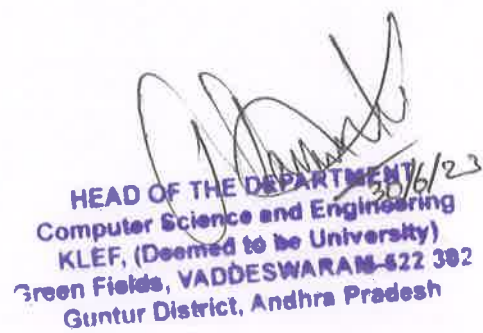 HEAD OF THE DEPARTMENT
30/6/23
Computer Science and Engineering
KLEF, (Deemed to be University)
Green Fields, VADDESWARAM-522 302
Guntur District, Andhra Pradesh